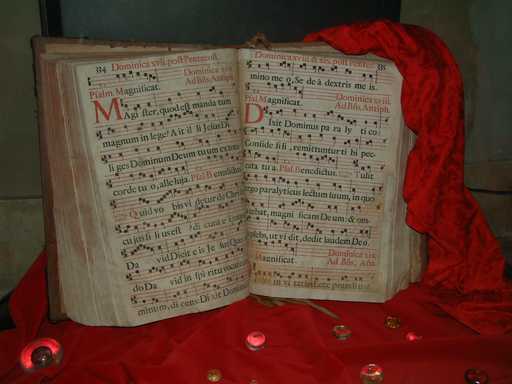 334 Dominica xvii. post Pentecost.
Ad Bñs. Antiph.
Psalm. Magnificat.
MAgister, quod est manda tum
magnum in lege? A it il li Jesus: Di
li ges Dominum Deum tu um ex toto
corde tu o, alleluia. Psal. Benedictus.
Quid vo bis vi detur de Christo
cu jus fi li us est?
Da vid Dicit e is Je sus: Quomodo
do Da vid in spi ritu vocat
minum, di cens: Di xit Dominus
Dominica xviii. & xix. post Pentec. 335
mino me o, Se de à dextris me is.
Dominica xviii.
Ad Bñs. Antiph.
Psal. Magnificat.
DIxit Dominus pa ra ly ti co
Confide fi li, remittuntur ti bi pec-
cata tu a. Psal. Benedictus. Tulit
ergo paralyticus lectum suum, in quo
jacebat, magni ficans De um: & om-
plebs, ut vi dit, dedit laudem De o.
Dominica xix.
Ad Bñs. Aña.
Magnificat.